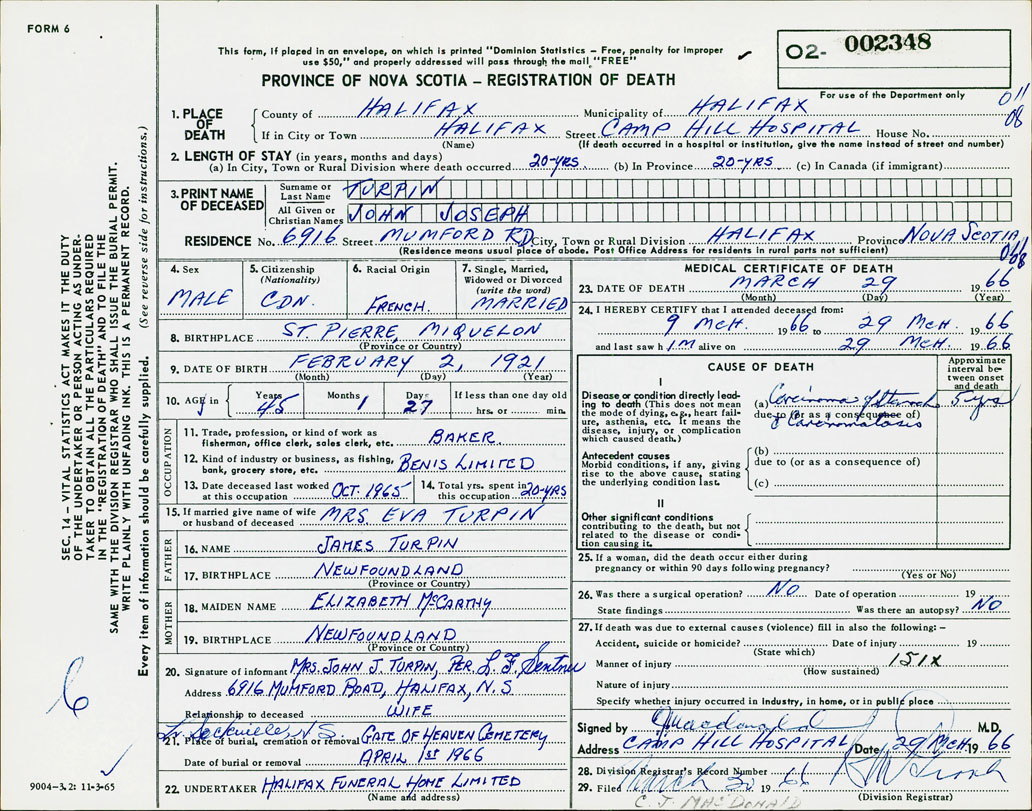 FORM 6
This form, if placed in an envelope, on which is printed "Dominion Statistics – Free, penalty for improper
use $50," and properly addressed will pass through the mail "FREE"
PROVINCE OF NOVA SCOTIA – REGISTRATION OF DEATH
O2- 002348
For use of the Department only
011
08
1. PLACE OF DEATH
County of HALIFAX Municipality of HALIFAX
If in City or Town HALIFAX Street CAMP HILL HOSPITAL House No.
(Name) (If death occurred in a hospital or institution, give the name instead of street and number)
2. LENGTH OF STAY (in years, months and days)
(a) In City, Town or Rural Division where death occurred 20-YRS (b) In Province 20-YRS (c) In Canada (if immigrant)
3. PRINT NAME OF DECEASED
Surname or Last Name TURPIN
All Given or Christian Names JOHN JOSEPH
RESIDENCE No. 6916 Street MUMFORD RD City, Town or Rural Division HALIFAX Province NOVA SCOTIA
(Residence means usual place of abode. Post Office Address for residents in rural parts not sufficient)
4. Sex
MALE
5. Citizenship (Nationality)
CDN.
6. Racial Origin
FRENCH.
7. Single, Married, Widowed or Divorced (write the word)
MARRIED
8. BIRTHPLACE ST. PIERRE, MIQUELON
(Province or Country)
9. DATE OF BIRTH FEBRUARY 2, 1921
(Month) (Day) (Year)
10. AGE in Years 45 Months 1 Days 27 If less than one day old hrs. or min.
OCCUPATION
11. Trade, profession, or kind of work as fisherman, office clerk, sales clerk, etc. BAKER
12. Kind of industry or business, as fishing, bank, grocery store, etc. BENIS LIMITED
13. Date deceased last worked at this occupation OCT. 1965
14. Total yrs. spent in this occupation 20-YRS
15. If married give name of wife or husband of deceased MRS EVA TURPIN
FATHER
16. NAME JAMES TURPIN
17. BIRTHPLACE NEWFOUNDLAND
(Province or Country)
MOTHER
18. MAIDEN NAME ELIZABETH McCARTHY
19. BIRTHPLACE NEWFOUNDLAND
(Province or Country)
20. Signature of informant MRS. JOHN J. TURPIN, PER. L. F. Sentner
Address 6916 MUMFORD ROAD, HALIFAX, N.S
Relationship to deceased WIFE
21. Place of burial, cremation or removal GATE OF HEAVEN CEMETERY
Lr. Sackville N.S.
Date of burial or removal APRIL 1ST 1966
22. UNDERTAKER HALIFAX FUNERAL HOME LIMITED
(Name and address)
MEDICAL CERTIFICATE OF DEATH
068
23. DATE OF DEATH MARCH 29 1966
(Month) (Day) (Year)
24. I HEREBY CERTIFY that I attended deceased from:
9 McH. 1966 to 29 McH. 1966
and last saw h IM alive on 29 McH. 1966
CAUSE OF DEATH
Approximate interval between onset and death
I
Disease or condition directly leading to death (This does not mean the mode of dying, e.g., heart failure, asthenia, etc. It means the disease, injury, or complication which caused death.)
(a) Carcinoma of Stomach 5 yrs
due to (or as a consequence of)
Carcinomatosis
Antecedent causes
Morbid conditions, if any, giving rise to the above cause, stating the underlying condition last.
(b)
due to (or as a consequence of)
(c)
II
Other significant conditions
contributing to the death, but not related to the disease or condition causing it.
25. If a woman, did the death occur either during
pregnancy or within 90 days following pregnancy?
(Yes or No)
26. Was there a surgical operation? NO Date of operation 19
State findings Was there an autopsy? NO
27. If death was due to external causes (violence) fill in also the following: –
Accident, suicide or homicide? Date of injury 19
(State which)
Manner of injury 151X
(How sustained)
Nature of injury
Specify whether injury occurred in industry, in home, or in public place
Signed by M.D.
Address CAMP HILL HOSPITAL Date 29 McH 1966
28. Division Registrar's Record Number
29. Filed March 1966
(Division Registrar)
C. J. MACDONALD
SEC. 14 – VITAL STATISTICS ACT MAKES IT THE DUTY
OF THE UNDERTAKER OR PERSON ACTING AS UNDER-
TAKER TO OBTAIN ALL THE PARTICULARS REQUIRED
IN THE "REGISTRATION OF DEATH" AND TO FILE THE
SAME WITH THE DIVISION REGISTRAR WHO SHALL ISSUE THE BURIAL PERMIT.
WRITE PLAINLY WITH UNFADING INK. THIS IS A PERMANENT RECORD.
Every item of information should be carefully supplied. (See reverse side for instructions.)
6
9004-3.2: 11-3-65